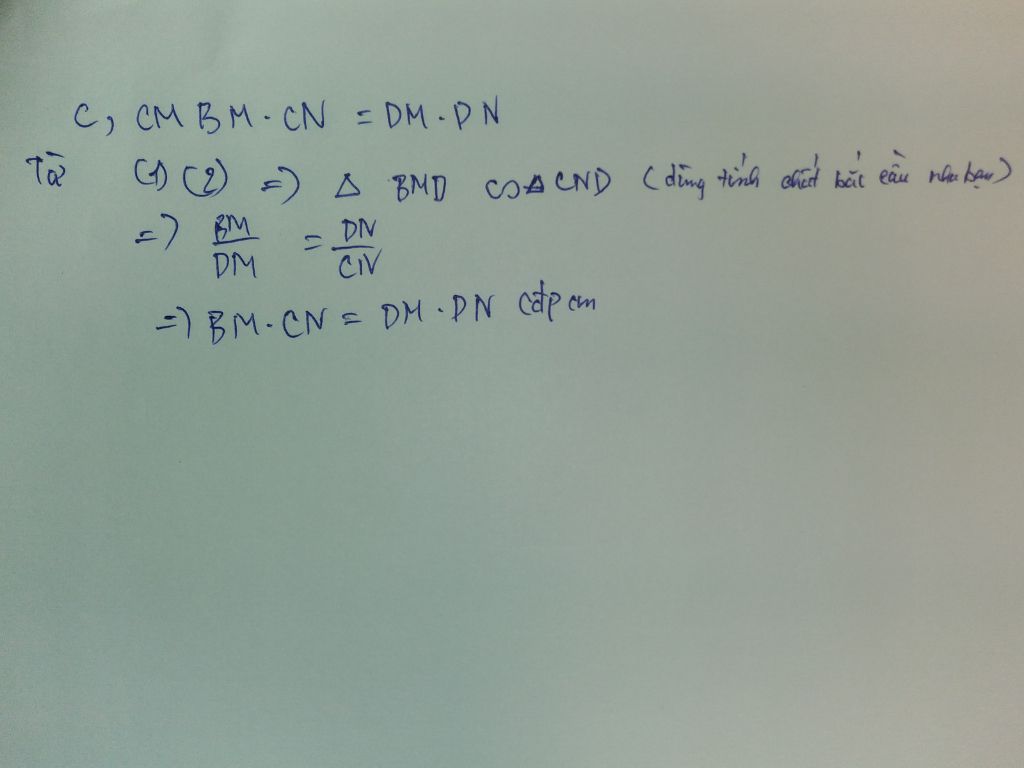 c, CM BM . CN = DM . DN
Từ (1) (2) => Δ BMD ∽ Δ CND (dùng tính chất bắc cầu nha bạn)
=> BM/DM = DN/CN
=> BM . CN = DM . DN (đpcm